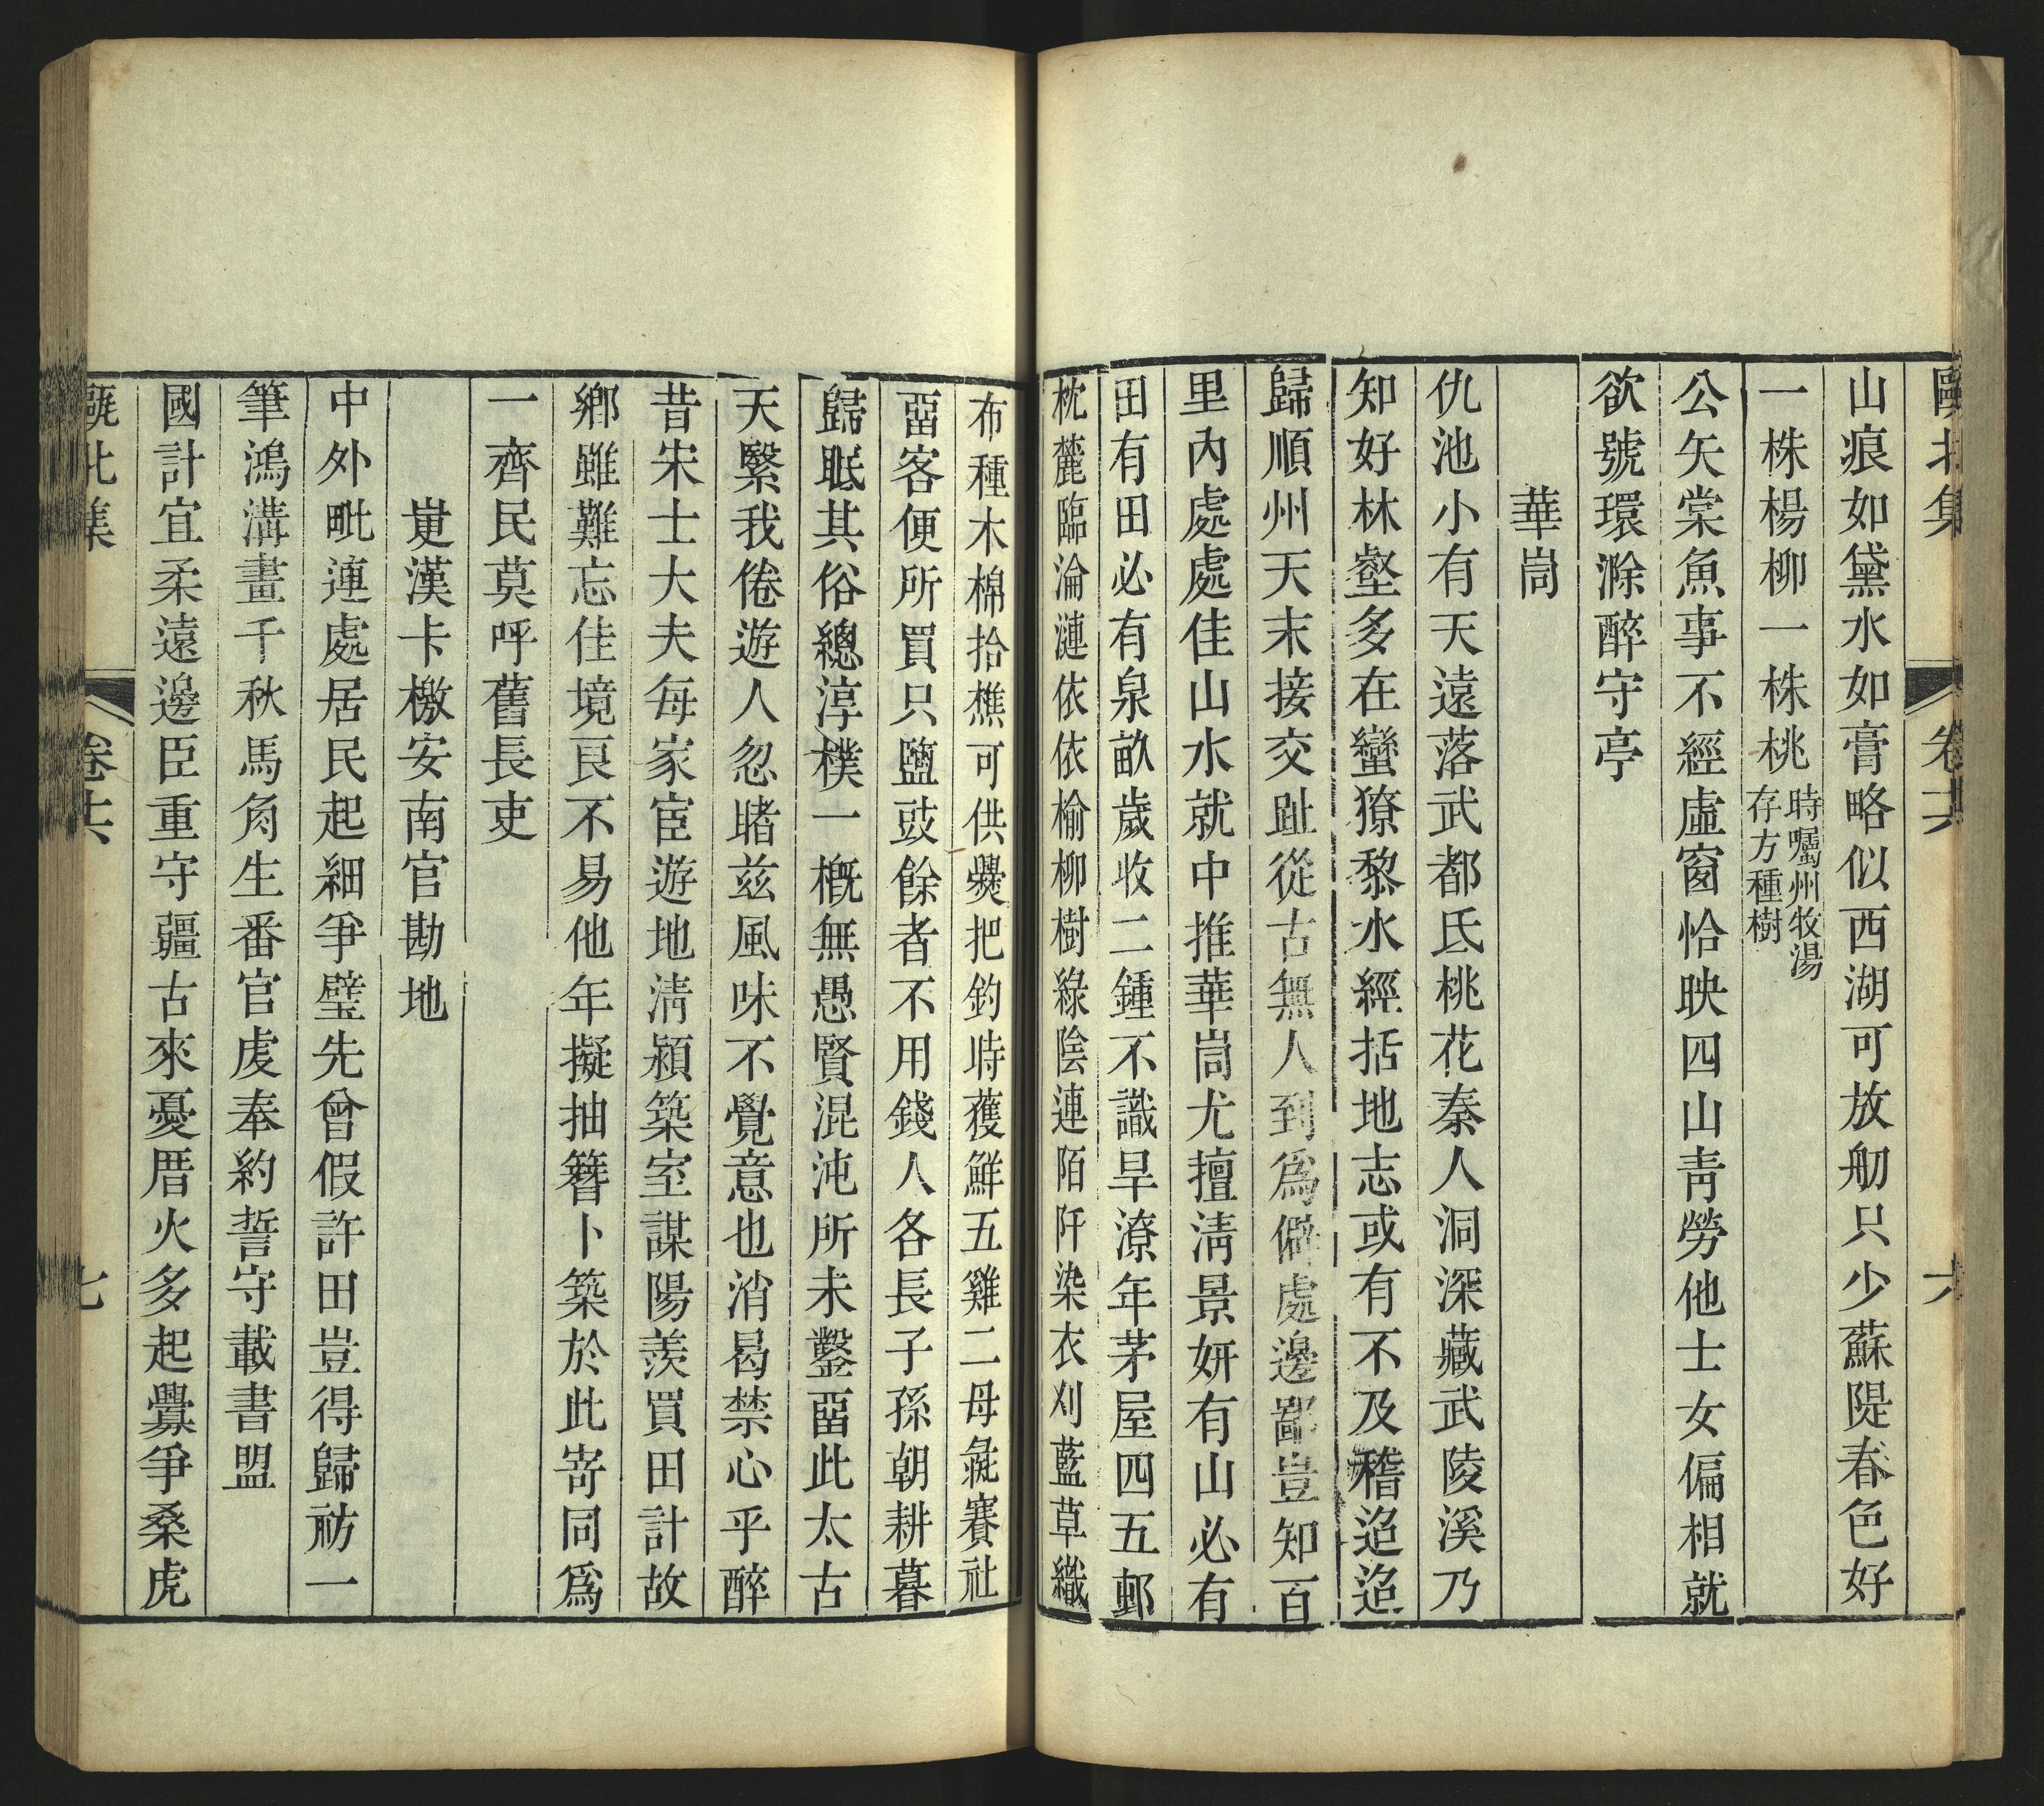 甌北集
卷十六
六
山痕如黛水如膏略似西湖可放舠只少蘇隄春色好
一株楊柳一株桃時囑州牧湯
存方種樹
公矢棠魚事不經虛窗恰映四山青勞他士女偏相就
欲號環滁醉守亭
華峝
仇池小有天遠落武都氐桃花秦人洞深藏武陵溪乃
知好林壑多在蠻獠黎水經括地志或有不及稽迨迨
歸順州天末接交趾從古無人到為僻處邊鄙豈知百
里內處處佳山水就中推華峝尤擅清景妍有山必有
田有田必有泉畝歲收二鍾不識旱潦年茅屋四五邨
枕麓臨淪漣依依榆柳樹綠陰連陌阡染衣刈藍草織
布種木棉拾樵可供爨把釣時獲鮮五雞二母彘賽社
畱客便所買只鹽豉餘者不用錢人各長子孫朝耕暮
歸眠其俗總淳樸一概無愚賢混沌所未鑿畱此太古
天繄我倦遊人忽睹茲風味不覺意也消曷禁心乎醉
昔宋士大夫每家宦遊地清潁築室謀陽羨買田計故
鄉雖難忘佳境良不易他年擬抽簪卜築於此寄同為
一齊民莫呼舊長吏
峺漢卡檄安南官勘地
中外毗連處居民起細爭璧先曾假許田豈得歸祊一
筆鴻溝畫千秋馬角生番官虔奉約誓守載書盟
國計宜柔遠邊臣重守疆古來憂厝火多起釁爭桑虎
甌北集
卷十六
七